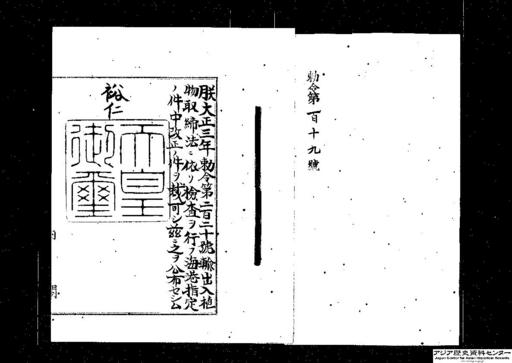 勅令第百十九號
朕大正三年勅令第二百二十號輸出入植
物取締法ニ依リ檢査ヲ行フ海港指定
ノ件中改正ノ件ヲ裁可シ茲ニ之ヲ公布セシム
裕仁
天皇
御璽
アジア歴史資料センター
Japan Center for Asian Historical Records